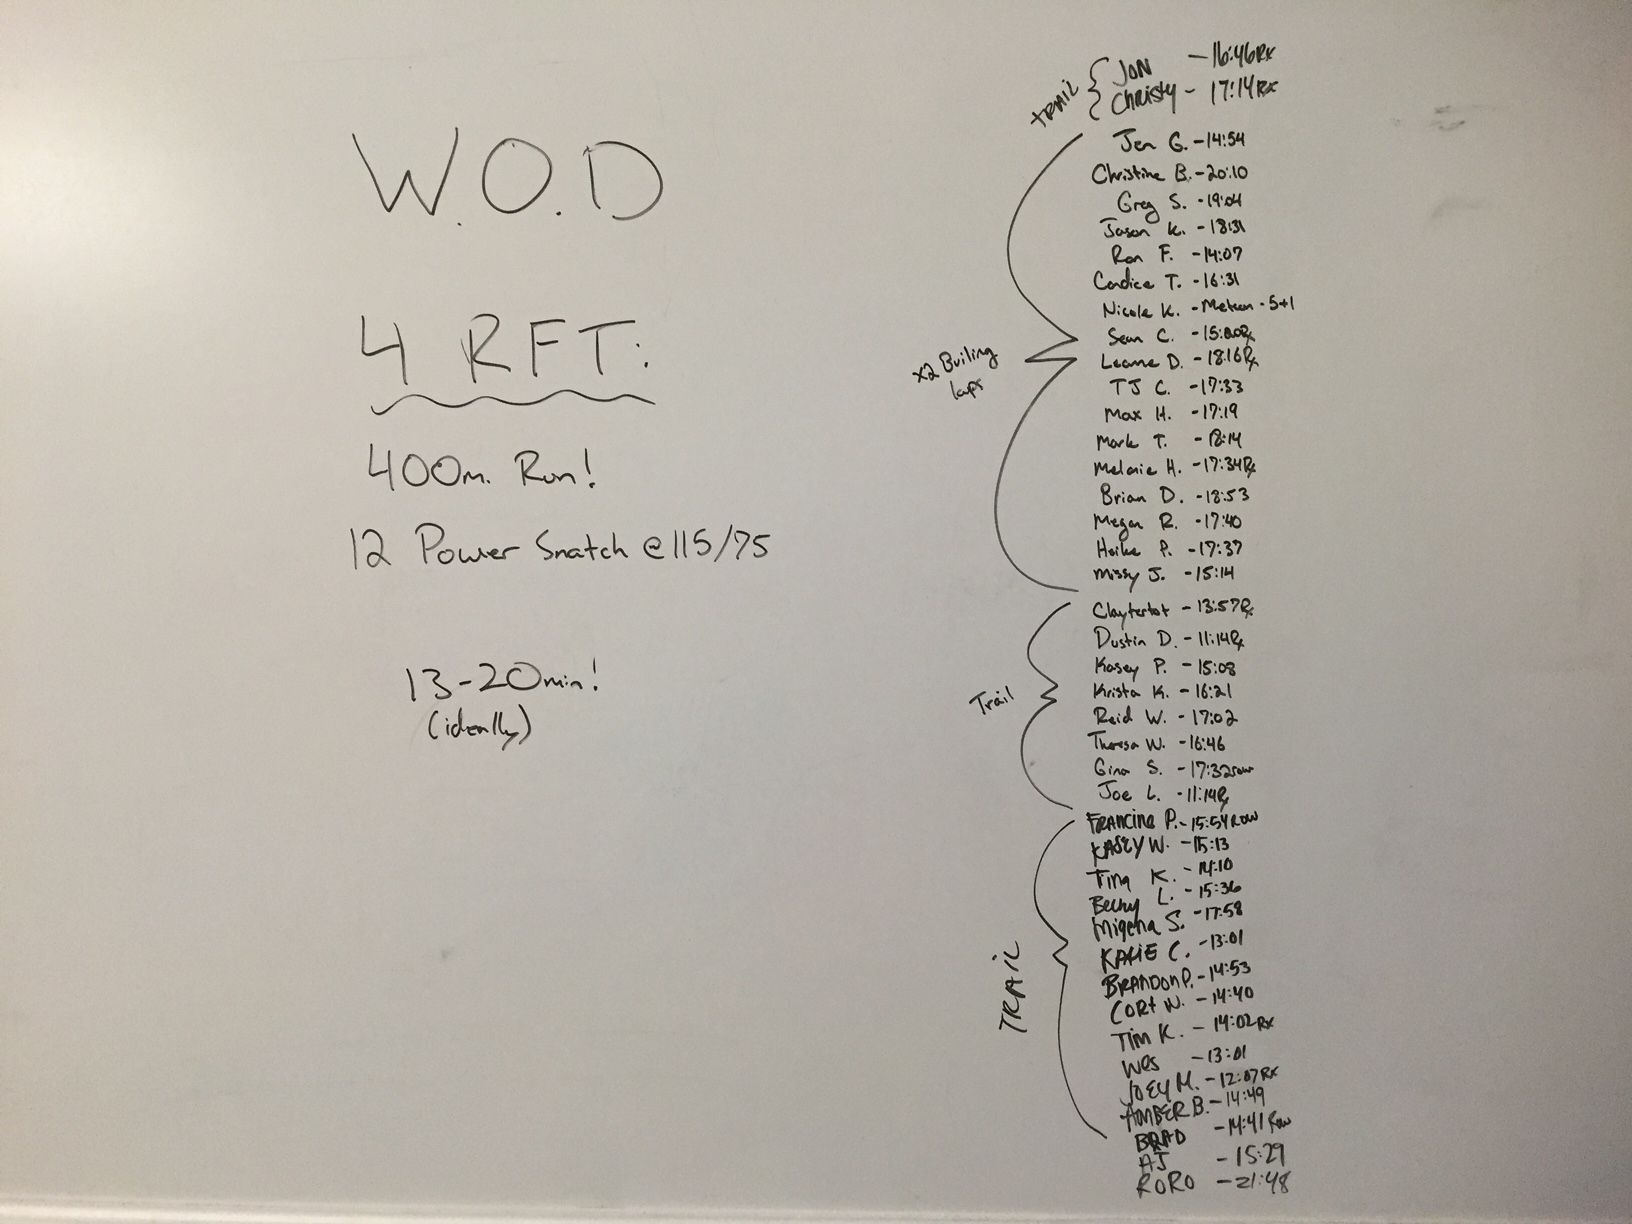 W.O.D
4 RFT:
400m. Run!
12 Power Snatch @ 115/75
13-20min!
(ideally)
TRAIL
JON - 16:46 Rx
Christy - 17:14 Rx
x2 Builing
laps
Jen G. - 14:54
Christine B. - 20:10
Greg S. - 19:04
Jason K. - 18:31
Ron F. - 14:07
Candice T. - 16:31
Nicole K. - Metcon - 5+1
Sean C. - Rx
Leanne D. - 18:16 Rx
TJ C. - 17:33
Max H. - 17:19
Mark T. - 18:14
Melanie H. - 17:34 Rx
Brian D. - 18:53
Megan R. - 17:40
Heike P. - 17:37
Missy J. - 15:14
Trail
Claytertot - 13:57 Rx
Dustin D. - 11:14 Rx
Kasey P. - 15:08
Krista K. - 16:21
Reid W. - 17:02
Theresa W. - 16:46
Gina S. - 17:32 row
Joe L. - 11:14 Rx
TRAIL
FRANCINE P. - 15:54 ROW
KASEY W. - 15:13
Tina K. - 14:10
Becky L. - 15:36
Migena S. - 17:58
KATIE C. - 13:01
BRANDON P. - 14:53
CORT W. - 14:40
TIM K. - 14:02 Rx
Wes - 13:01
JOEY M. - 12:07 Rx
AMBER B. - 14:49
BRAD - 14:41 Row
AJ - 15:29
RORO - 21:48